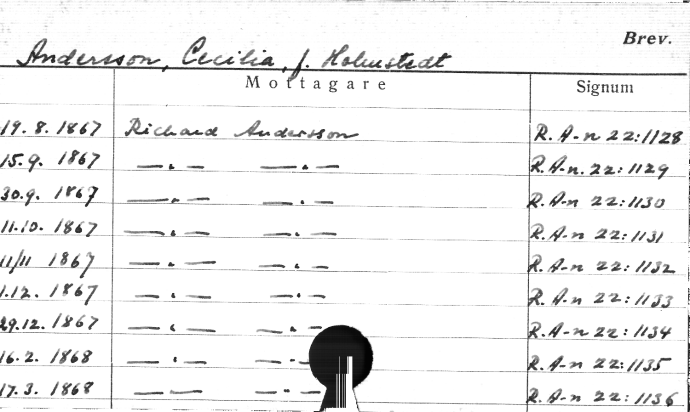 Brev.
Andersson, Cecilia, f. Holmstedt
Mottagare Signum
19.8.1867 Richard Andersson R. A-n 22:1128
15.9.1867 —.— —.— R. A-n. 22:1129
30.9.1867 —.— —.— R. A-n 22:1130
11.10.1867 —.— —.— R. A-n 22:1131
11/11 1867 —.— —.— R. A-n 22:1132
1.12.1867 —.— —.— R. A-n 22:1133
29.12.1867 —.— —.— R. A-n 22:1134
16.2.1868 —.— —.— R. A-n 22:1135
17.3.1868 —.— —.— R. A-n 22:1136